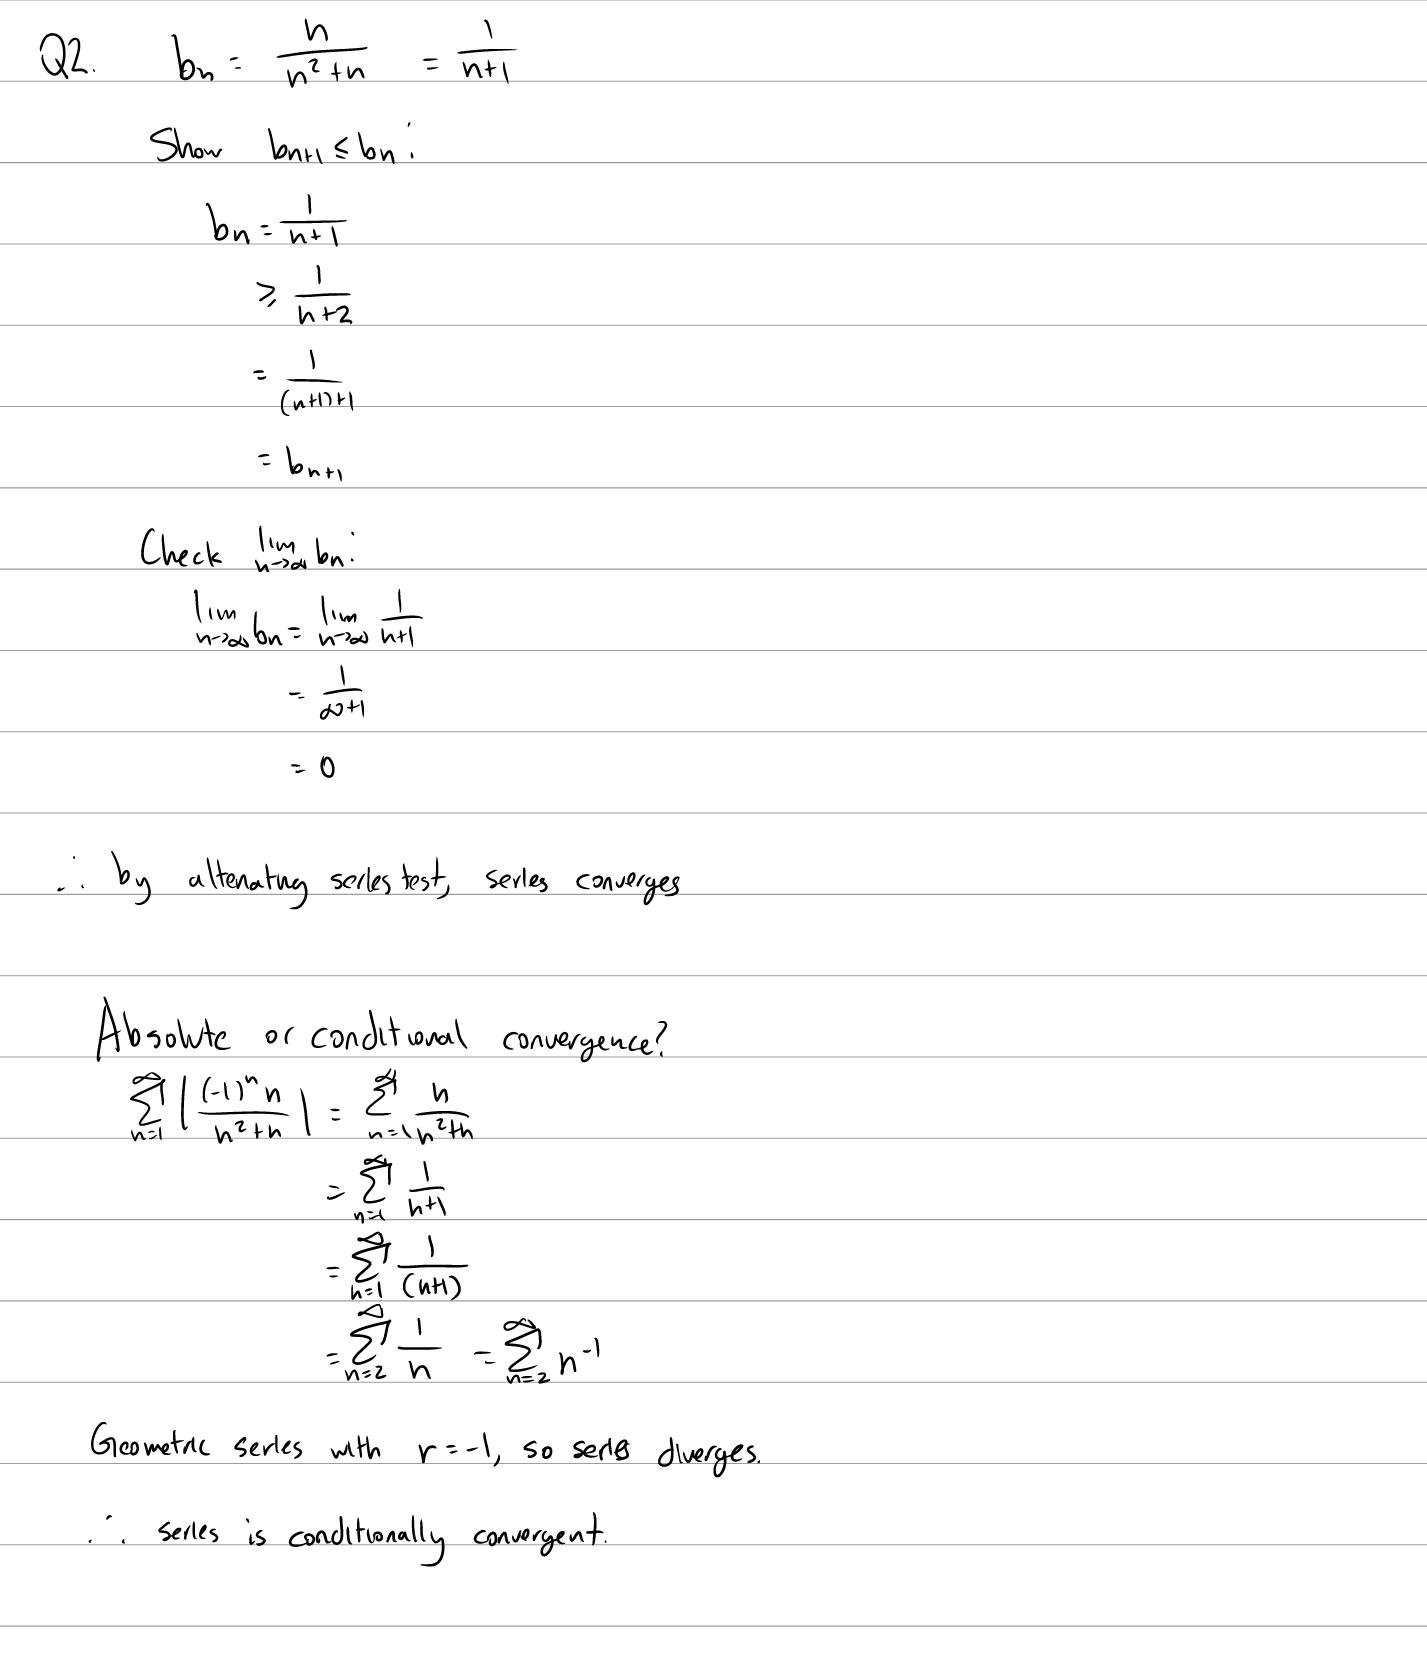 Q2. bn = n/(n²+n) = 1/(n+1)
Show bn+1 ≤ bn:
bn = 1/(n+1)
≥ 1/(n+2)
= 1/((n+1)+1)
= bn+1
Check lim n→∞ bn:
lim n→∞ bn = lim n→∞ 1/(n+1)
= 1/(∞+1)
= 0
∴ by altenating series test, series converges
Absolute or conditional convergence?
∑ n=1 ∞ |(-1)ⁿ n/(n²+n)| = ∑ n=1 ∞ n/(n²+n)
= ∑ n=1 ∞ 1/(n+1)
= ∑ n=1 ∞ 1/(n+1)
= ∑ n=2 ∞ 1/n = ∑ n=2 ∞ n⁻¹
Geometric series with r=-1, so series diverges.
∴ series is conditionally convergent.